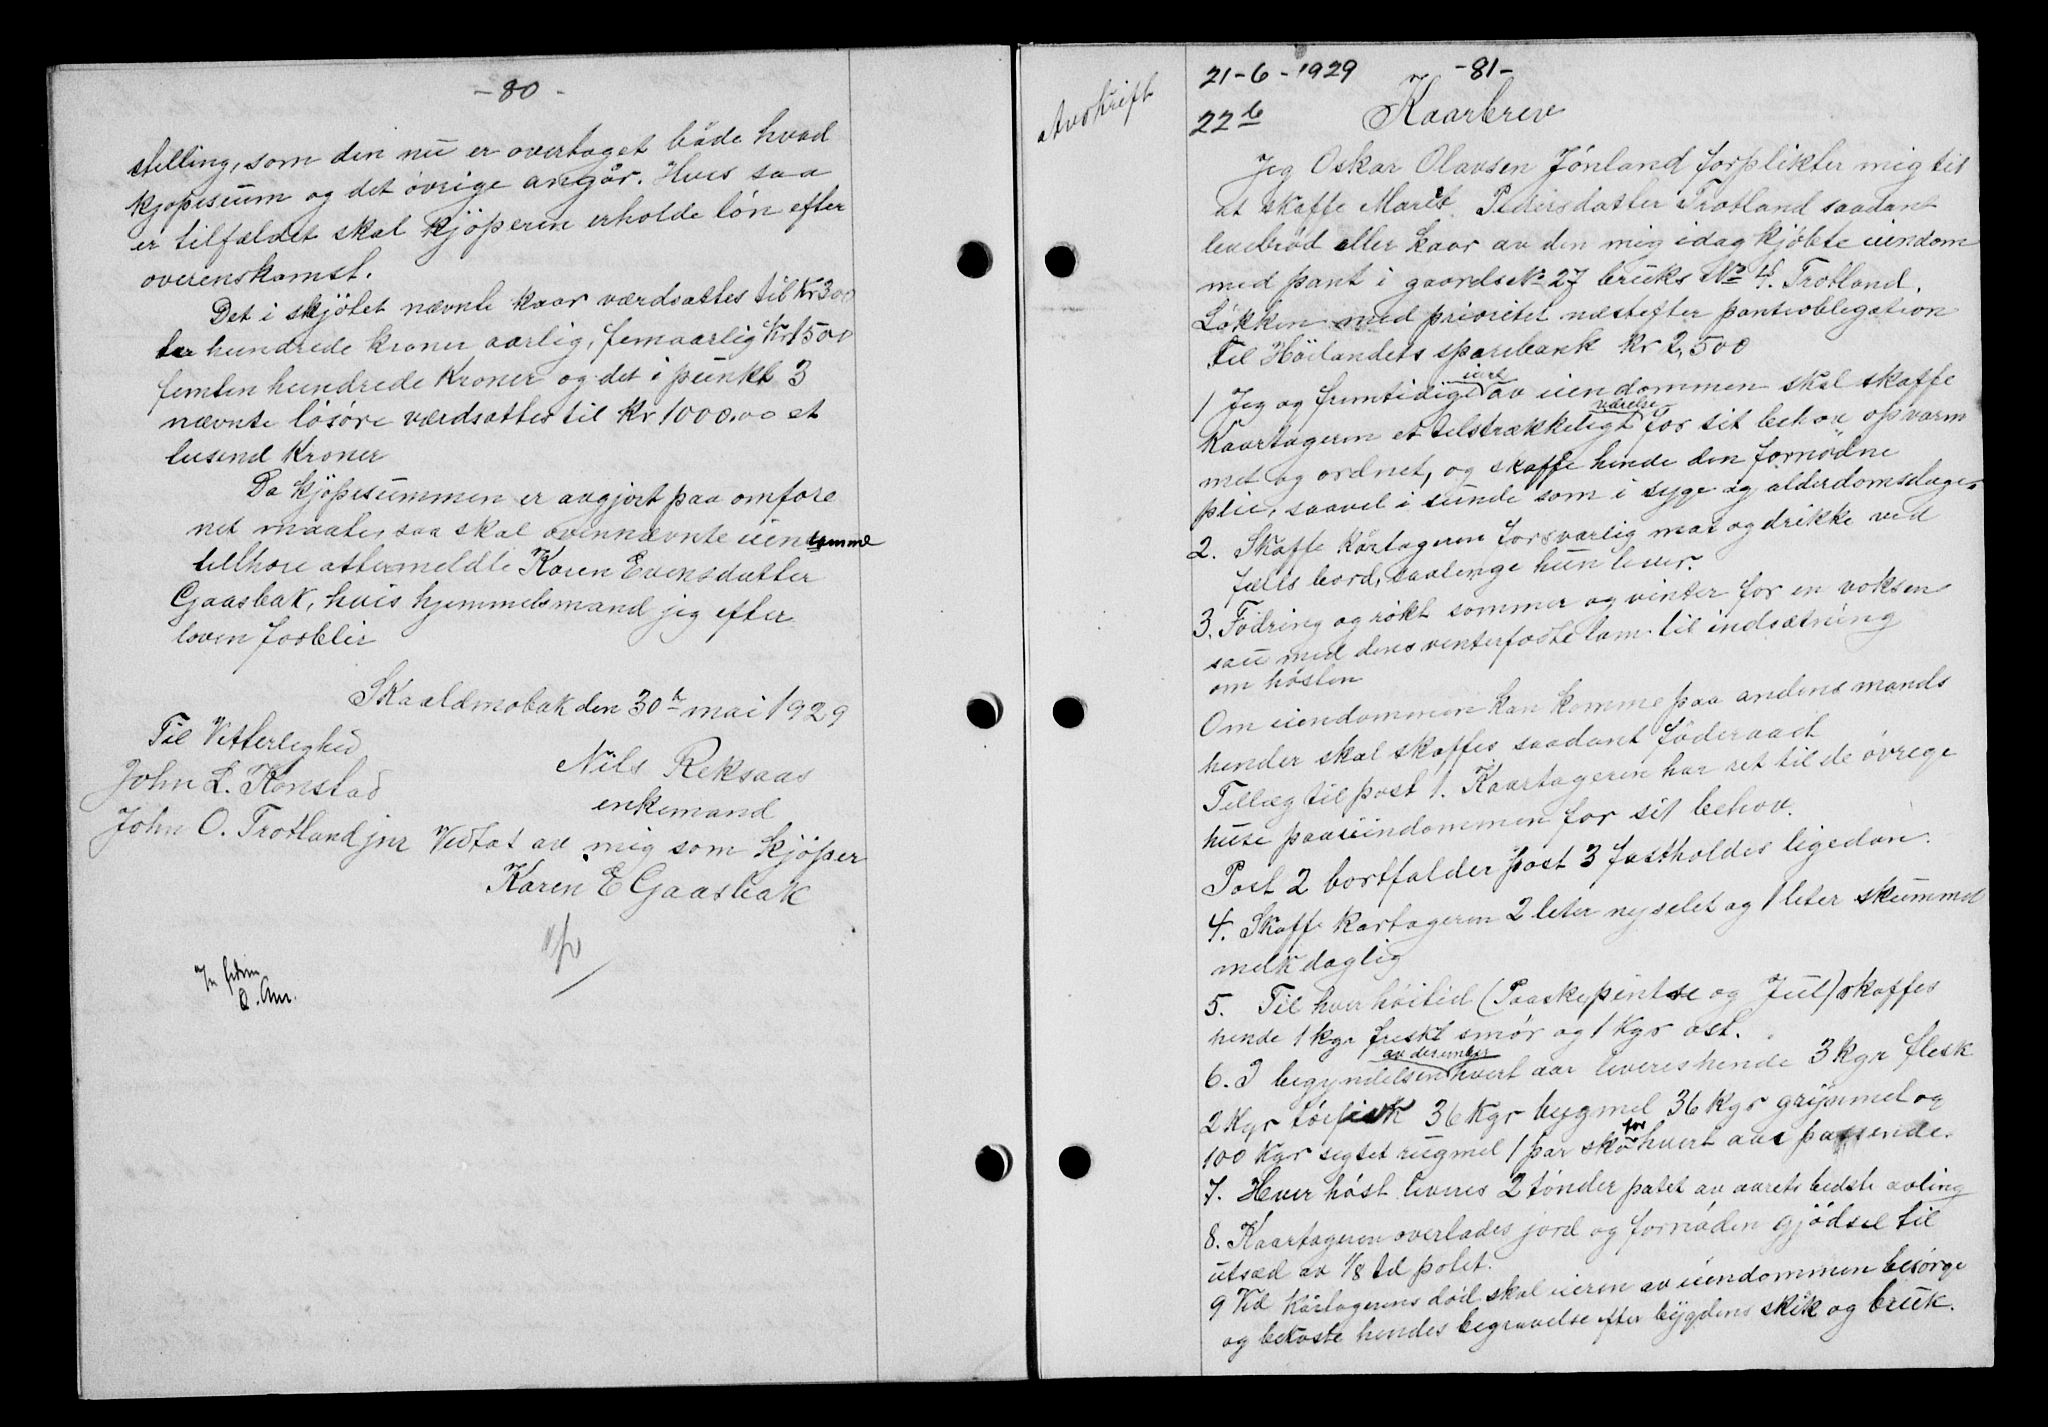 - 80 -
stilling, som den nu er overtaget både hvad
kjøpesum og det øvrige angår. Hvis saa
er tilfældet skal kjøperen erholde løn efter
overenskomst.
Det i skjøtet nævnte kaar værdsattes til Kr 300
tre hundrede kroner aarlig, femaarlig Kr 1500
femten hundrede Kroner og det i punkt 3
nævnte løsøre værdsattes til Kr 1000.00 et
tusend Kroner
Da kjøpesummen er avgjort paa omfore
net maate, saa skal ovennævnte eiendomme
tilhøre attermeldte Karen Evensdatter
Gaasbak, hvis hjemmelsmand jeg efter
loven forblir
Skaaldmobak den 30te mai 1929
Til Vitterlighed
Nils Reksaas
John L. Konstad
enkemand
John O. Trotland jnr Vedtat av mig som kjøper
Karen E Gaasbak
21-6-1929 -81-
Avskrift
22b Kaarbrev
Jeg Oskar Olavsen Jønland forplikter mig til
at skaffe Maret Pedersdatter Trotland saadant
levebrød eller kaar av den mig idag kjøbte eiendom
med pant i gaards No 27 bruks No 4. Trotland,
Løkken med prioritet næstefter pantobligation
til Høilandets sparebank kr 2,500
1 Jeg og fremtidige eiere av eiendommen skal skaffe
Kaartageren et tilstrækkeligt værelse for sit behov opvarm
met og ordnet, og skaffe hende den fornødne
pleie, saavel i sunde som i syge og alderdomsdage.
2. Skaffe kårtageren forsvarlig mat og drikke ved
fælis bord, saalenge hun lever.
3. Fodring og røkt sommer og vinter for en voksen
sau med dens venterfødte lam til indsætning
om høsten
Om eiendommen kan komme paa andens mands
hender skal skaffes saadant føderaad
Tillæg til post 1. Kaartageren har ret til de øvrege
huse paa eiendommen for sit behov.
Post 2 bortfalder Post 3 fastholdes ligedan.
4. Skaffe kartageren 2 leter nyselet og 1 leter skummel
melk daglig
5. Til hver høitid (Paaske, pintse og Jul) skaffes
hende 1 kgr freskt smør og 1 Kgr ost.
6. I begyndelsen av desember hvert aar leveres hende 3 Kgr flesk
2 Kgr tørfisk 36 Kgr bygmel 36 Kgr grynmel og
100 Kgr segtet rugmel 1 par sko for hvert aar passende.
7. Hver høst leveres 2 tønder potet av aarets bedste avling
8. Kaartageren overlades jord og fornøden gjødsel til
utsæd av 1/8 td potet.
9 Ved kårtagerens død skal eieren av eiendommen besørge
og bekoste hendes begravelse efter bygdens skik og bruk.